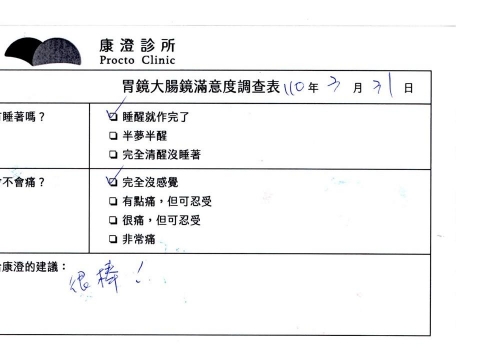 康澄診所
Procto Clinic
胃鏡大腸鏡滿意度調查表 110年3月31日
睡著嗎？
睡醒就作完了
半夢半醒
完全清醒沒睡著
不會痛？
完全沒感覺
有點痛，但可忍受
很痛，但可忍受
非常痛
康澄的建議：
很棒！